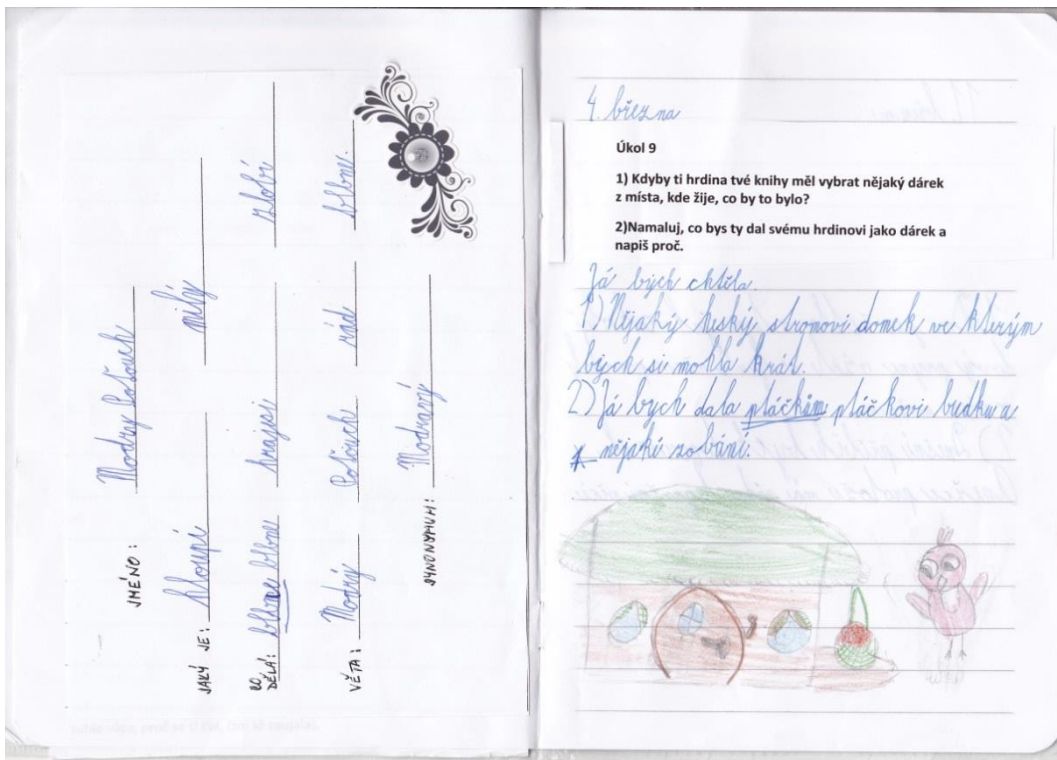 JMÉNO: Modrey Poťouch
JAKÝ JE: hloupí milý
CO DĚLÁ: blbne hrajesi zlobí
VĚTA: Modrý Poťouch rád blbne.
SYNONYMUM: Modravý
4. března
Úkol 9
1) Kdyby ti hrdina tvé knihy měl vybrat nějaký dárek
z místa, kde žije, co by to bylo?
2)Namaluj, co bys ty dal svému hrdinovi jako dárek a
napiš proč.
Já bych chtěla.
1) Nějaký heský stromovi domek ve kterým
bych si mohla hrát.
2) Já bych dala ptáčkům ptáčkovi budku a
nějaké zobání.